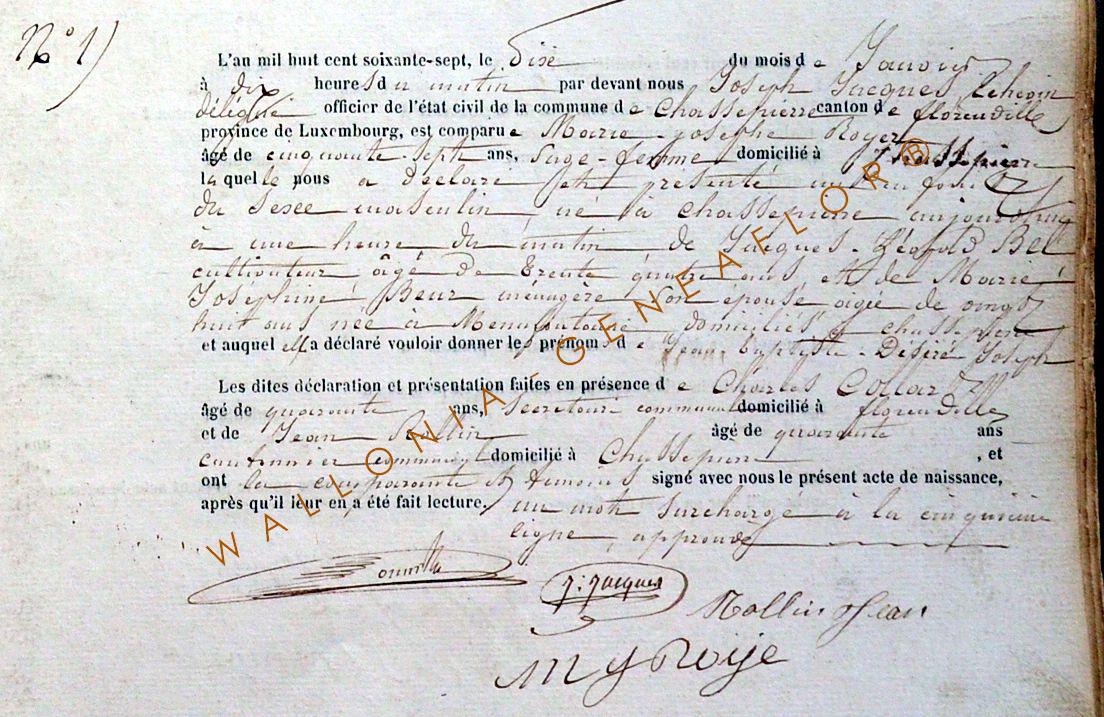 N° 1)
L'an mil huit cent soixante-sept, le dix du mois de Janvier
à dix heures du matin par devant nous Joseph Jacques Echevin
délégué officier de l'état civil de la commune de Chassepierre canton de florenville
province de Luxembourg, est comparue Marie-josephe Royer
âgé de cinquante-sept ans, Sage-femme domicilié à Chassepierre
laquelle nous a déclaré et présenté un enfant
du sexe masculin, né à chassepierre aujourd'hui
à une heure du matin de Jacques-Léopold
cultivateur âgé de trente quatre ans et de Marie
Joséphine ménagère son épouse âgée de vingt
huit ans née à domiciliés à chassepierre
et auquel elle a déclaré vouloir donner les prénoms de Jean Baptiste-Désiré Joseph
Les dites déclaration et présentation faites en présence de Charles Collard
âgé de quarante ans, Secrétaire communal domicilié à florenville
et de Jean Rollin âgé de quarante ans
cantonnier communal domicilié à Chassepierre, et
ont la comparante et témoins signé avec nous le présent acte de naissance,
après qu'il leur en a été fait lecture. un mot surchargé à la cinquième
ligne, approuvé
J. Jacques
Rollin Jean
M J Roije
WALLONIA - GENEAFLOR ®